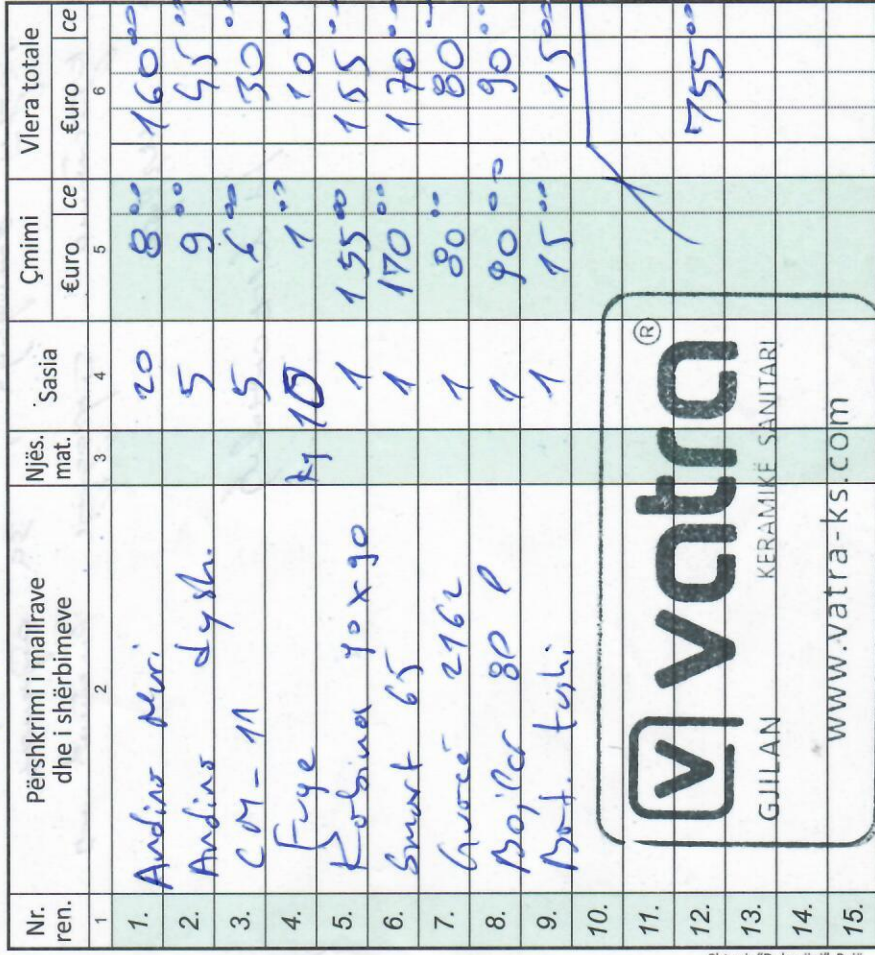 Nr. ren. Përshkrimi i mallrave dhe i shërbimeve Njës. mat. Sasia Çmimi €uro ce Vlera totale €uro ce
1 2 3 4 5 6
1. Andino Muri 20 8 00 160 00
2. Andino dysh. 5 9 00 45 00
3. CM-11 5 6 00 30 00
4. Fuge kg 10 1 00 10 00
5. Kabina 90x90 1 155 00 155 00
6. Smart 65 1 170 00 170 00
7. 2162 1 80 00 80
8. Bojler 80 l 1 90 00 90 00
9. Bat. tushi 1 15 00 15 00
10.
11.
12. 755 00
13.
14.
15.
v vatra ®
GJILAN KERAMIKË SANITARI
www.vatra-ks.com